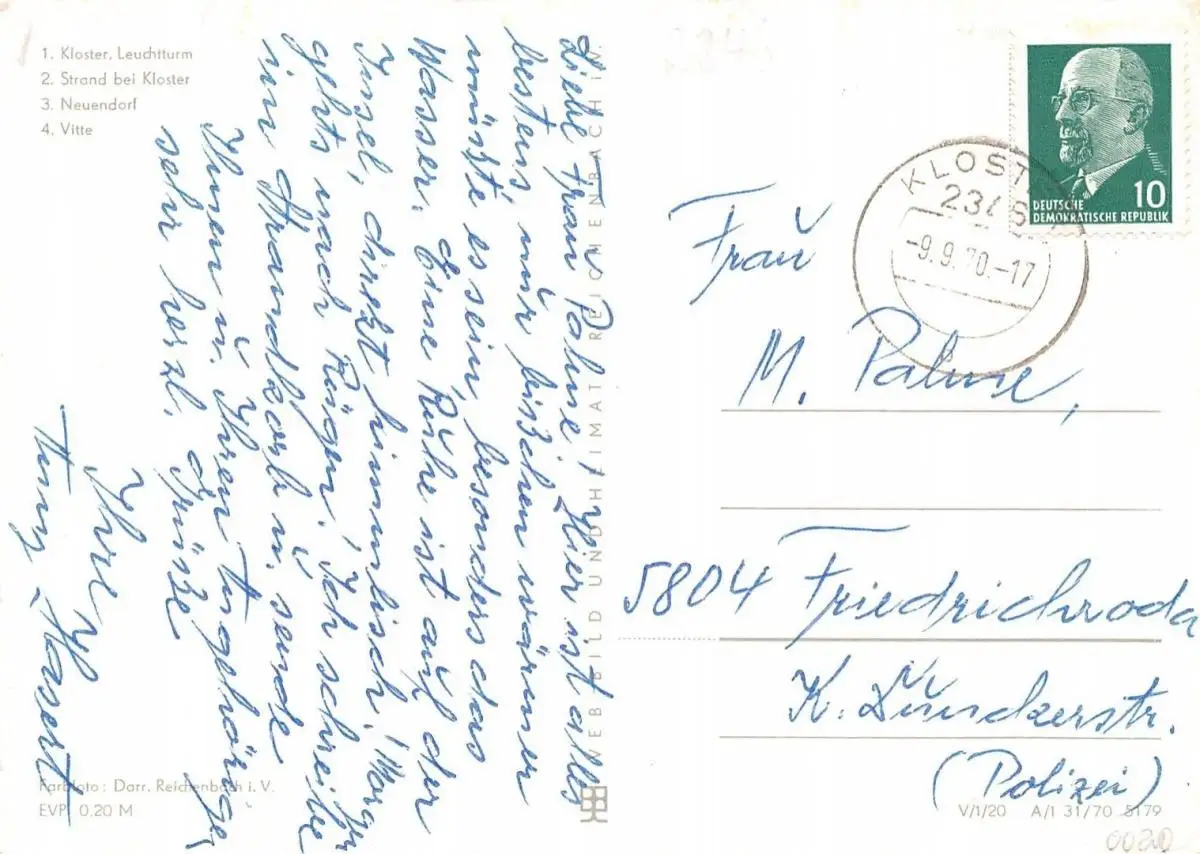 1. Kloster, Leuchtturm
2. Strand bei Kloster
3. Neuendorf
4. Vitte
Liebe Frau Palme! Hier ist alles
bestens, nur bißchen wärmer
müßte es sein, besonders das
Wasser. Eine Ruhe ist auf der
Insel, direkt himmlisch! Morgen
gehts nach Rügen. Ich schreibe
im Strandkorb u. sende
Ihnen u. Ihren Angehörigen
sehr herzl. Grüße
Ihre
Hasert
VEB BILD UND HEIMAT REICHENBACH I. V.
DEUTSCHE
DEMOKRATISCHE REPUBLIK
10
KLOST
-9.9.70.-17
Frau
M. Palme,
5804 Friedrichroda
K. Zünckerstr.
(Polizei)
Farbfoto: Darr, Reichenbach i. V.
EVP 0.20 M
V/1/20 A/I 31/70 5179
0020